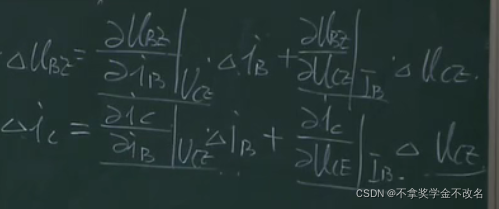 Δu_BE = ∂u_BE/∂i_B |U_CE · Δi_B + ∂u_BE/∂u_CE |I_B · Δu_CE.
Δi_C = ∂i_C/∂i_B |U_CE Δi_B + ∂i_C/∂u_CE |I_B · Δ u_CE
CSDN @不拿奖学金不改名